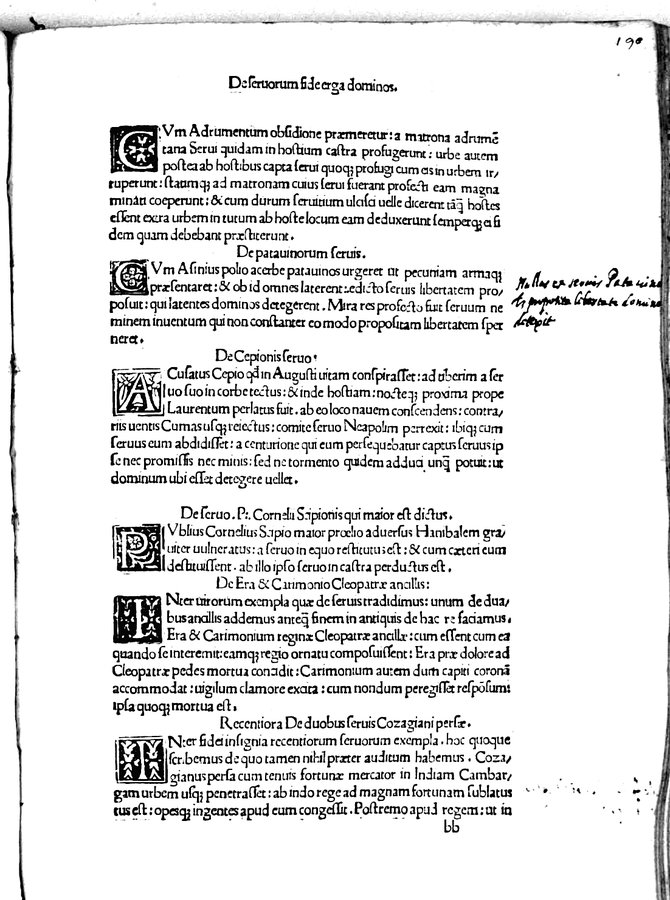 190
De seruorum fide erga dominos.
CVm Adrumentum obsidione præmeretur: a matrona adrumẽ
tana Serui quidam in hostium castra profugerunt: urbe autem
postea ab hostibus capta serui quoq; profugi cum eis in urbem ir/
ruperunt: statimq; ad matronam cuius serui fuerant profecti eam magna
minari coeperunt: & cum durum seruitium ulcisci uelle dicerent tãq̃ hostes
essent extra urbem in tutum ab hoste locum eam deduxerunt semperq; ei fi
dem quam debebant præstiterunt.
De patauinorum seruis.
CVm Asinius polio acerbe patauinos urgeret ut pecuniam armaq;
præsentaret: & ob id omnes laterent: edicto seruis libertatem pro/
posuit: qui latentes dominos detegerent. Mira res profecto fuit seruum ne
minem inuentum qui non constanter eo modo propositam libertatem sper
neret.
Nullus ex seruis Patauinis
proposita libertate dominum
detexit
De Cepionis seruo.
ACusatus Cepio qd in Augusti uitam conspirasset: ad tiberim a ser
uo suo in corbe tectus: & inde hostiam: nocteq; proxima prope
Laurentum perlatus fuit. ab eo loco nauem conscendens: contra/
riis uentis Cumas usq; reiectus: comite seruo Neapolim perrexit: ibiq; cum
seruus eum abdidisset: a centurione qui eum persequebatur captus seruus ip
se nec promissis nec minis: sed ne tormento quidem adduci unq̃ potuit: ut
dominum ubi esset detegere uellet.
De seruo. P. Cornelii Scipionis qui maior est dictus.
PVblius Cornelius Scipio maior prœlio aduersus Hanibalem gra/
uiter uulneratus: a seruo in equo restitutus est: & cum cæteri eum
destituissent. ab illo ipso seruo in castra perductus est.
De Era & Carimonio Cleopatræ ancillis:
INter uirorum exempla quæ de seruis tradidimus: unum de dua/
bus ancillis addemus anteq̃ finem in antiquis de hac re faciamus.
Era & Carimonium reginæ Cleopatræ ancillæ: cum essent cum ea
quando se interemit: eamq; regio ornatu composuissent: Era præ dolore ad
Cleopatræ pedes mortua concidit: Carimonium autem dum capiti coronã
accommodat: uigilum clamore excita: cum nondum peregisset respõsum:
ipsa quoq; mortua est.
Recentiora De duobus seruis Cozagiani persæ.
INter fidei insignia recentiorum seruorum exempla. hoc quoque
scribemus de quo tamen nihil præter auditum habemus. Coza/
gianus persa cum tenuis fortunæ mercator in Indiam Cambar/
gam urbem usq; penetrasset: ab indo rege ad magnam fortunam sublatus
tus est: opesq; ingentes apud eum congessit. Postremo apud regem: ut in
bb